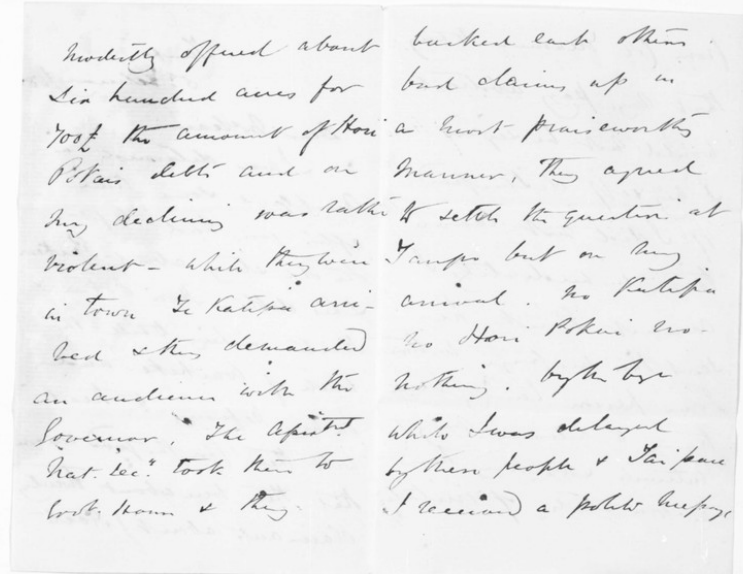 modestly offered about
six hundred acres for
700£ the amount of Hori
Pokais debts and on
my declining was rather
violent – while they were
in town Te Katipa arri-
ved & they demanded
an audience with the
Governor. The Assist.
Nat. Sec" took them to
Govt. House & they
backed each others
bad claims up in
a most praiseworthy
manner, they agreed
to settle the question at
Taupo but on my
arrival. no Katipa
no Hori Pokai no-
nothing. by the bye
while I was delayed
by these people & Taipari
I received a polite message